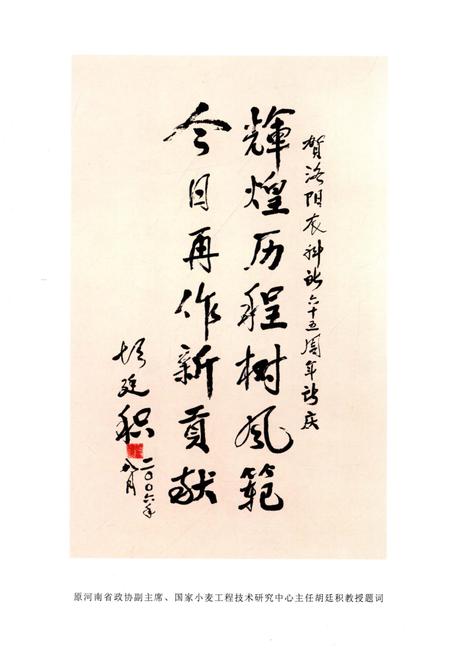 賀洛阳农科所六十五周年所庆
輝煌历程树風範
今日再作新貢献
胡廷积
二〇〇六年
八月
原河南省政协副主席、国家小麦工程技术研究中心主任胡廷积教授题词